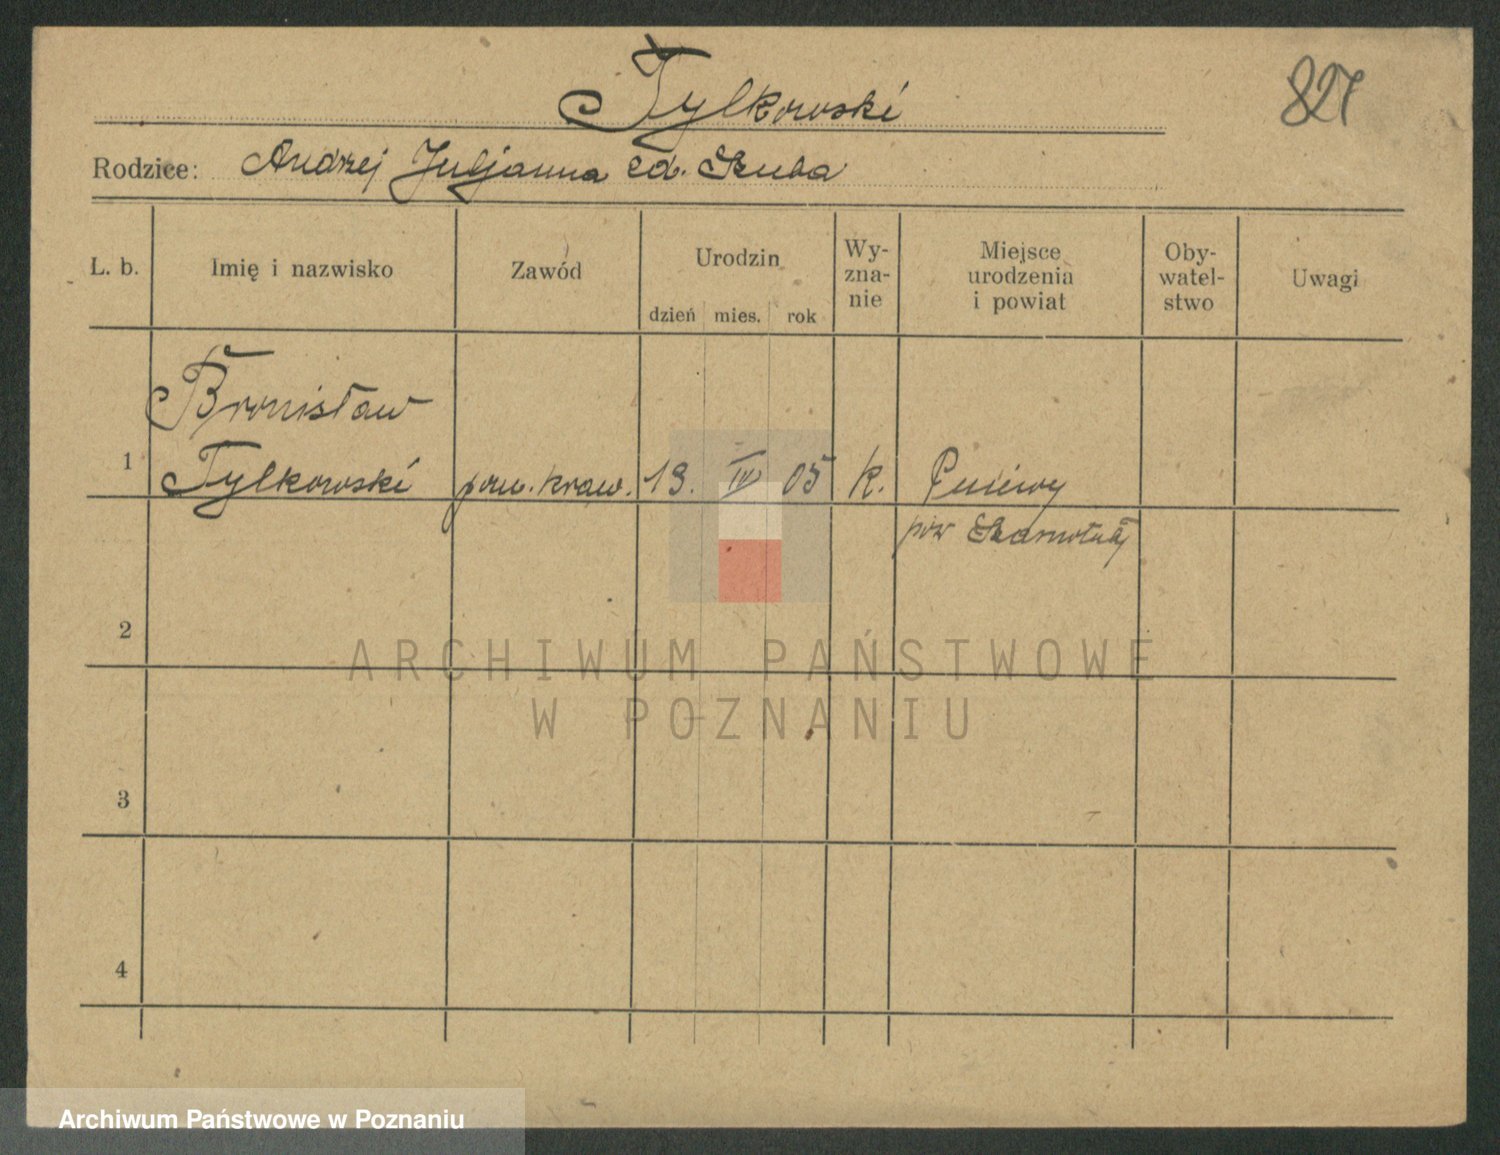 Tylkowski
827
Rodzice: Andrzej Juljanna zd. Szuba
L. b.
Imię i nazwisko
Zawód
Urodzin
dzień mies. rok
Wy-
zna-
nie
Miejsce
urodzenia
i powiat
Oby-
watel-
stwo
Uwagi
Bronisław
1 Tylkowski pom. kraw. 13. IV 05 k. Pniewy
pow Szamotuły
2
3
4
ARCHIWUM PAŃSTWOWE
W POZNANIU
Archiwum Państwowe w Poznaniu